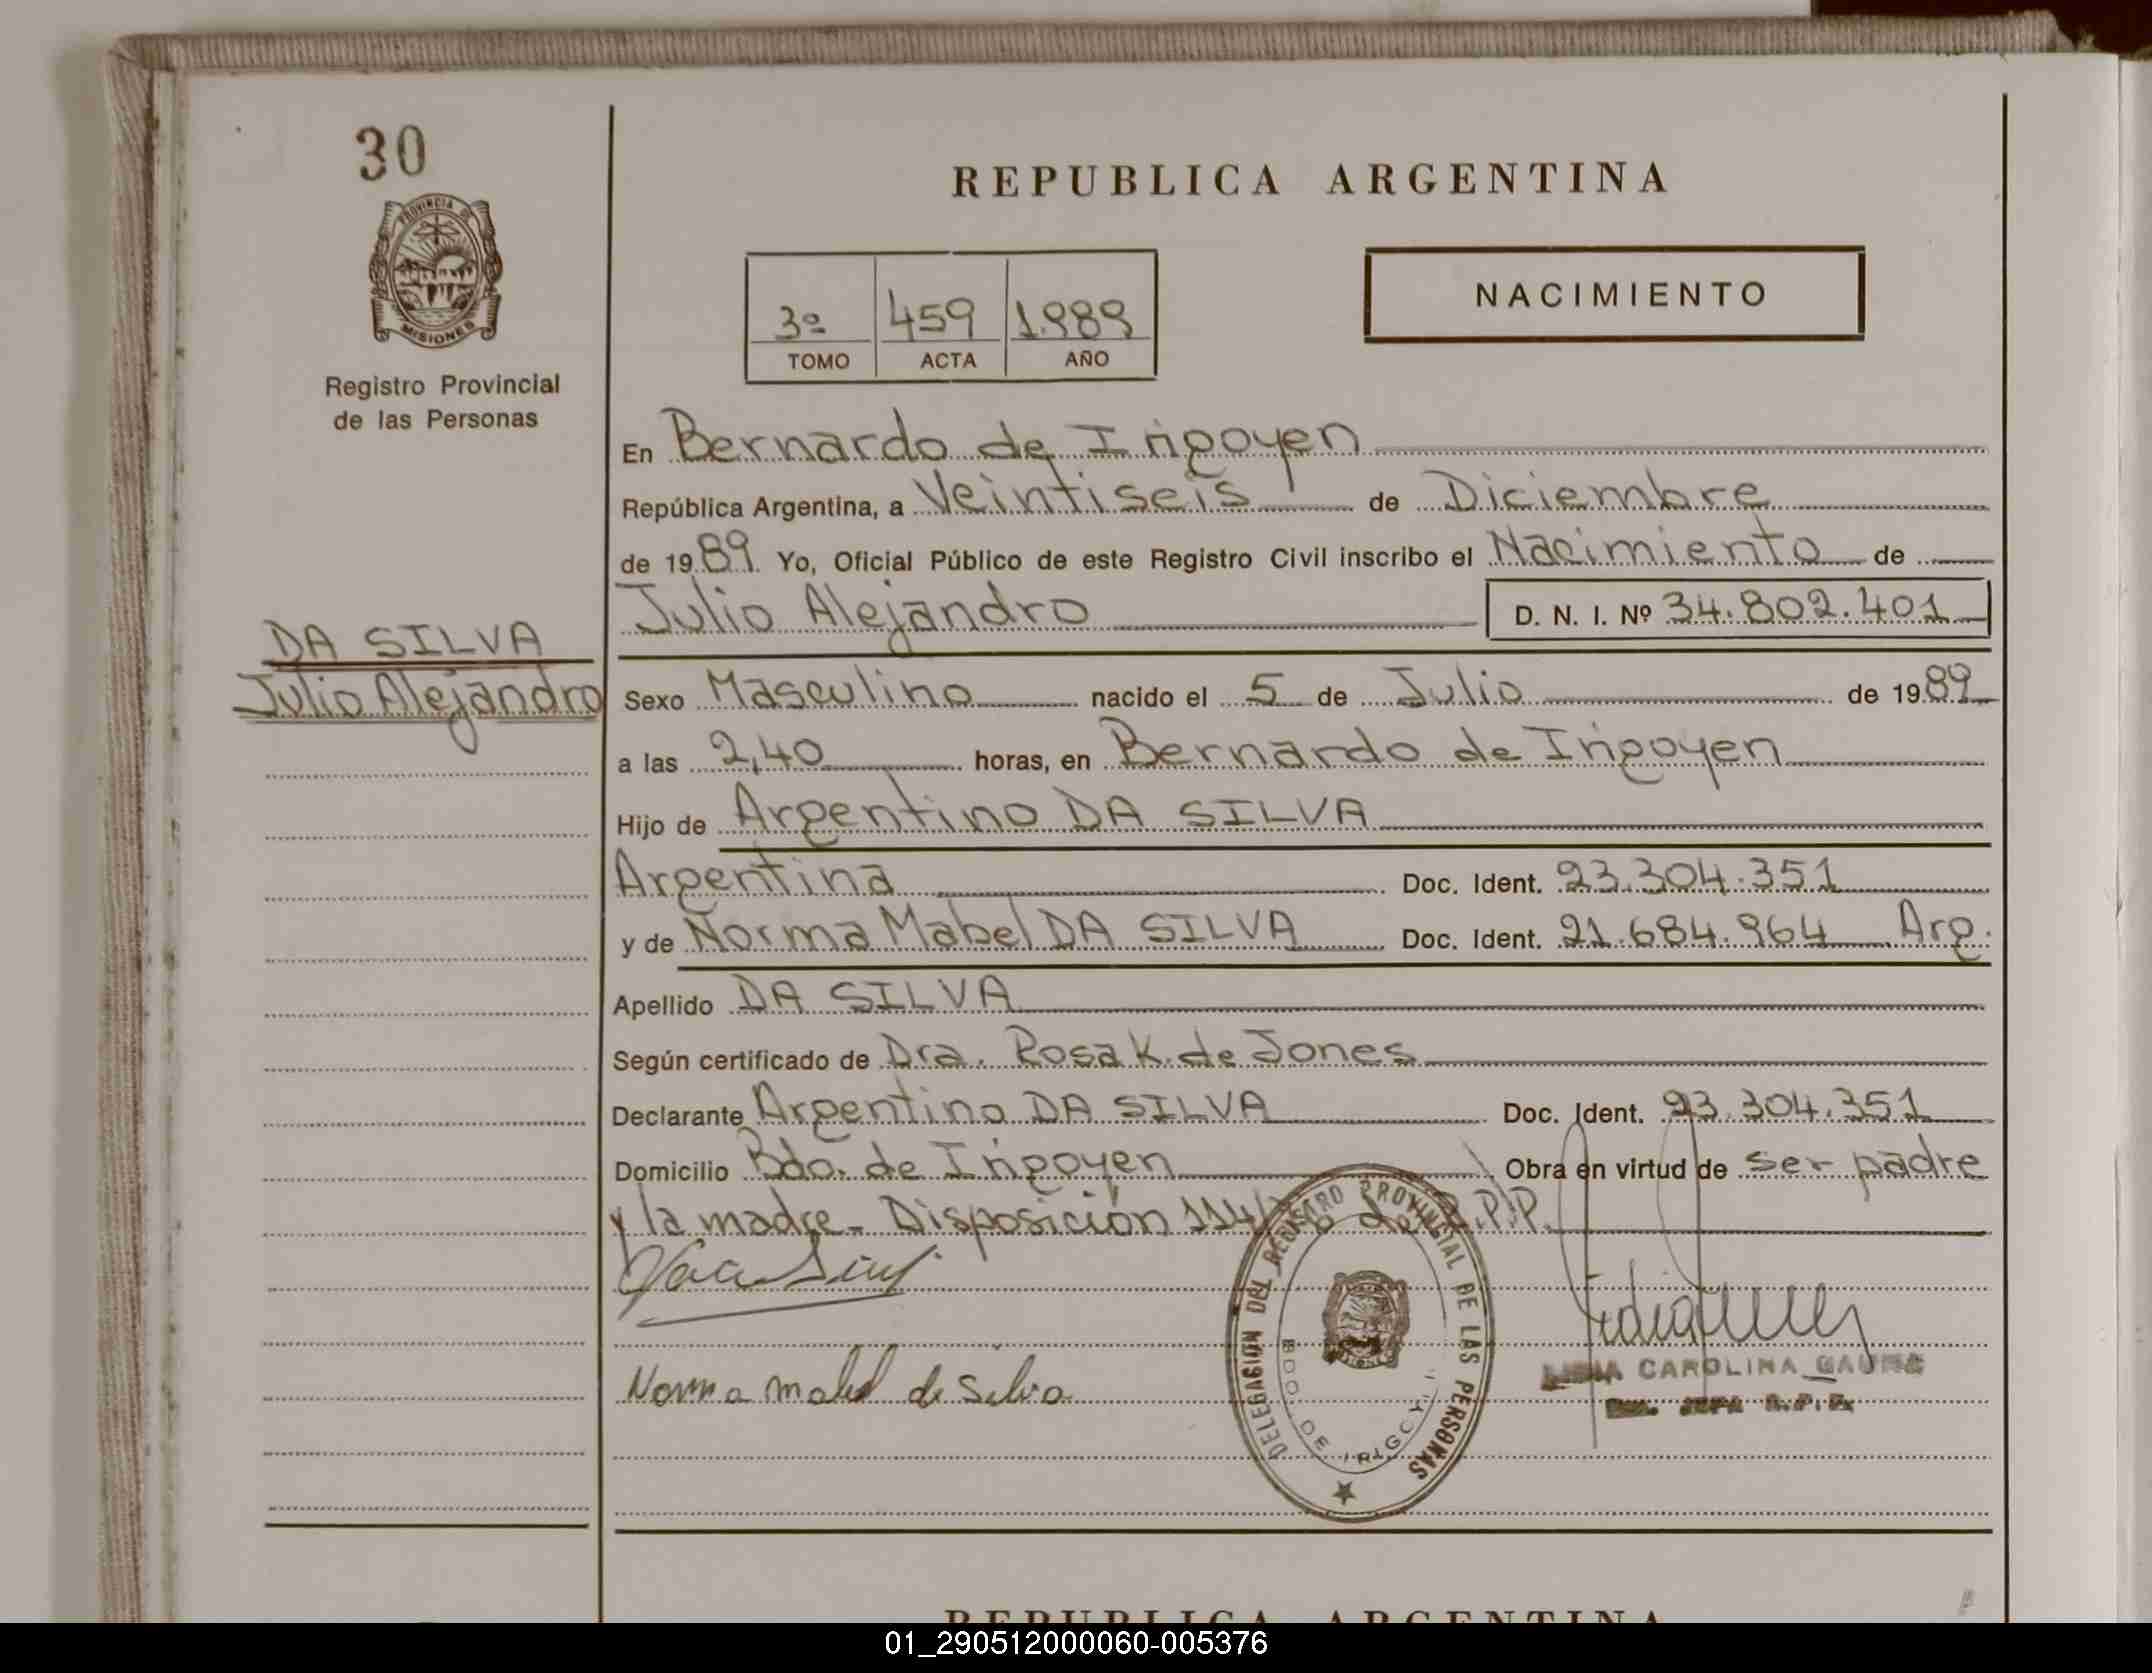 30
PROVINCIA DE
MISIONES
Registro Provincial
de las Personas
REPUBLICA ARGENTINA
3º 459 1.989
TOMO ACTA AÑO
NACIMIENTO
En Bernardo de Irigoyen
República Argentina, a Veintiseis de Diciembre
de 1989 Yo, Oficial Público de este Registro Civil inscribo el Nacimiento de
Julio Alejandro D. N. I. Nº 34.802.401
DA SILVA
Julio Alejandro
Sexo Masculino nacido el 5 de Julio de 1989
a las 2,40 horas, en Bernardo de Irigoyen
Hijo de Argentino DA SILVA
Argentina Doc. Ident. 23.304.351
y de Norma Mabel DA SILVA Doc. Ident. 21.684.964 Arg.
Apellido DA SILVA
Según certificado de Dra. Rosa K. de Jones
Declarante Argentino DA SILVA Doc. Ident. 23.304.351
Domicilio Bdo. de Irigoyen Obra en virtud de ser padre
y la madre- Disposición
Norma mabel da Silva
DELEGACION DEL REGISTRO PROVINCIAL DE LAS PERSONAS
BDO. DE IRIGOYEN
CAROLINA
REPUBLICA ARGENTINA
01_290512000060-005376